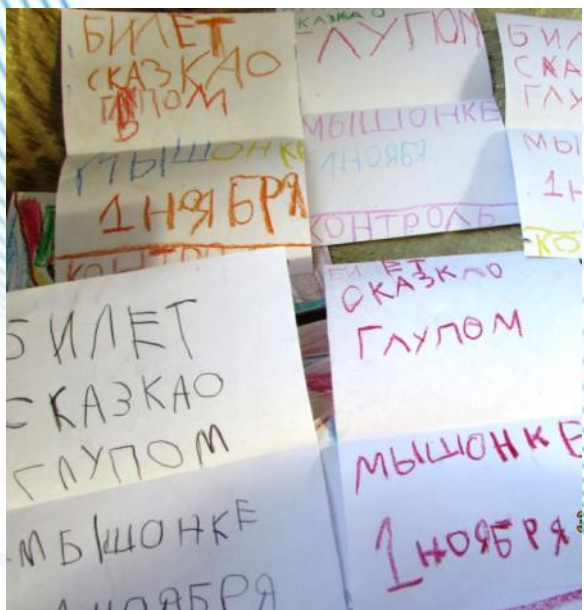 БИЛЕТ
СКАЗКАО
МЫШОНКЕ
1 НОЯБРЯ
КОНТРОЛЬ
КАЗКАО
ГЛУПОМ
МЫШОНКЕ
1 НОЯБРЯ
КОНТРОЛЬ
БИЛ
СКА
ГЛУ
МЫ
1 Н
КО
БИЛЕТ
СКАЗКАО
ГЛУПОМ
МЫШОНКЕ
1 НОЯБРЯ
БИЛЕТ
СКАЗКАО
ГЛУПОМ
МЫШОНКЕ
1 НОЯБРЯ